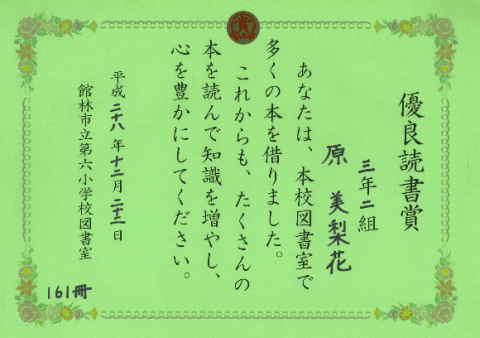 賞
優良読書賞
三年二組
原 美梨花
あなたは、本校図書室で
多くの本を借りました。
これからも、たくさんの
本を読んで知識を増やし、
心を豊かにしてください。
平成二十八年十二月二十二日
館林市立第六小学校図書室
161冊